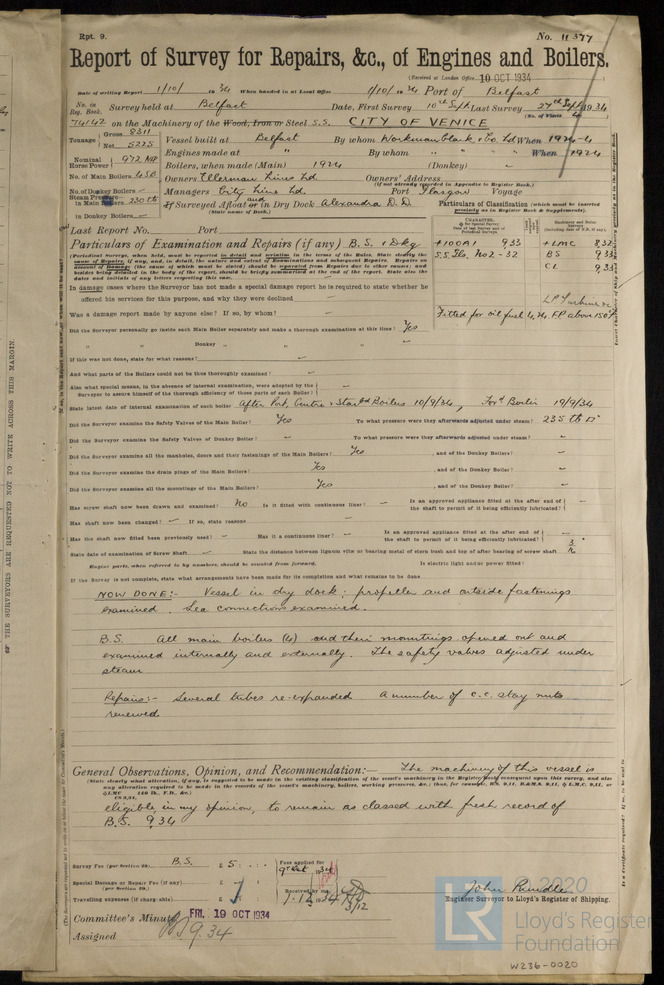 Rpt. 9.
No. 11377
Report of Survey for Repairs, &c., of Engines and Boilers.
(Received at London Office 10 OCT 1934
Date of writing Report 1/10/ 1934 When handed in at Local Office 1/10/ 1934 Port of Belfast
No. in Reg. Book. Survey held at Belfast Date, First Survey 10th Sept Last Survey 27th Sept 1934
(No. of Visits
74142 on the Machinery of the Wood, Iron or Steel S.S. CITY OF VENICE
Tonnage Gross 8311 Net 5225
Vessel built at Belfast By whom Workman Clark & Co. Ltd When 1924-4
Engines made at " By whom " " When 1924
Nominal Horse Power 972 NHP
Boilers, when made (Main) 1924 (Donkey) -
No. of Main Boilers 4 SB Owners Ellerman Lines Ltd Owners' Address
(if not already recorded in Appendix to Register Book.)
No. of Donkey Boilers - Managers City Line Ltd. Port Glasgow Voyage
Steam Pressure in Main Boilers 230 lb
If Surveyed Afloat or in Dry Dock Alexandra D.D.
(State name of Dock.)
in Donkey Boilers -
Particulars of Classification (which must be inserted precisely as in Register Book & Supplements).
Last Report No. Port
Particulars of Examination and Repairs (if any) B.S. & Dkg
+100A1 9.33 +LMC 8.32
S.S. No 2-32 BS 9.33
CL 9.33
Fitted for oil fuel 4,24. FP above 150°F
In damage cases where the Surveyor has not made a special damage report he is required to state whether he
offered his services for this purpose, and why they were declined -
Was a damage report made by anyone else? If so, by whom? -
Did the Surveyor personally go inside each Main Boiler separately and make a thorough examination at this time? Yes
" " Donkey " " " -
If this was not done, state for what reasons? -
And what parts of the Boilers could not be thus thoroughly examined? -
Also what special means, in the absence of internal examination, were adopted by the
Surveyor to assure himself of the thorough efficiency of those parts of each Boiler? -
State latest date of internal examination of each boiler After Port, Centre & Starbd Boilers 10/9/34, Ford Boiler 19/9/34
Did the Surveyor examine the Safety Valves of the Main Boiler? Yes To what pressure were they afterwards adjusted under steam? 235 lb □"
Did the Surveyor examine the Safety Valves of Donkey Boiler? - To what pressure were they afterwards adjusted under steam? -
Did the Surveyor examine all the manholes, doors and their fastenings of the Main Boilers? Yes , and of the Donkey Boilers? -
Did the Surveyor examine the drain plugs of the Main Boilers? Yes , and of the Donkey Boiler? -
Did the Surveyor examine all the mountings of the Main Boilers? Yes , and of the Donkey Boiler? -
Has screw shaft now been drawn and examined? No Is it fitted with continuous liner? - Is an approved appliance fitted at the after end of the shaft to permit of it being efficiently lubricated? -
Has shaft now been changed? - If so, state reasons
Has the shaft now fitted been previously used? - Has it a continuous liner? - Is an approved appliance fitted at the after end of the shaft to permit of it being efficiently lubricated? -
State date of examination of Screw Shaft - State the distance between lignum vitæ or bearing metal of stern bush and top of after bearing of screw shaft 3/16
Engine parts, when referred to by numbers, should be counted from forward. Is electric light and/or power fitted?
If the Survey is not complete, state what arrangements have been made for its completion and what remains to be done
NOW DONE:- Vessel in dry dock; propeller and outside fastenings
examined. Sea connections examined.
B.S. All main boilers (4) and their mountings opened out and
examined internally and externally. The safety valves adjusted under
steam
Repairs:- Several tubes re-expanded A number of c.c. stay nuts
renewed
General Observations, Opinion, and Recommendation:— The machinery of this vessel is
eligible, in my opinion, to remain as classed with fresh record of
B.S. 9.34
Survey Fee (per Section 29). B.S. £ 5 : :
Special Damage or Repair Fee (if any) (per Section 29). £
Travelling expenses (if chargeable) £
Fees applied for
9 Oct 1934
Received by me,
John Rundle
Engineer Surveyor to Lloyd's Register of Shipping.
Committee's Minute FRI. 19 OCT 1934
Assigned BS 9.34
THE SURVEYORS ARE REQUESTED NOT TO WRITE ACROSS THIS MARGIN.
LR
© 2020
Lloyd's Register
Foundation
W236-0020